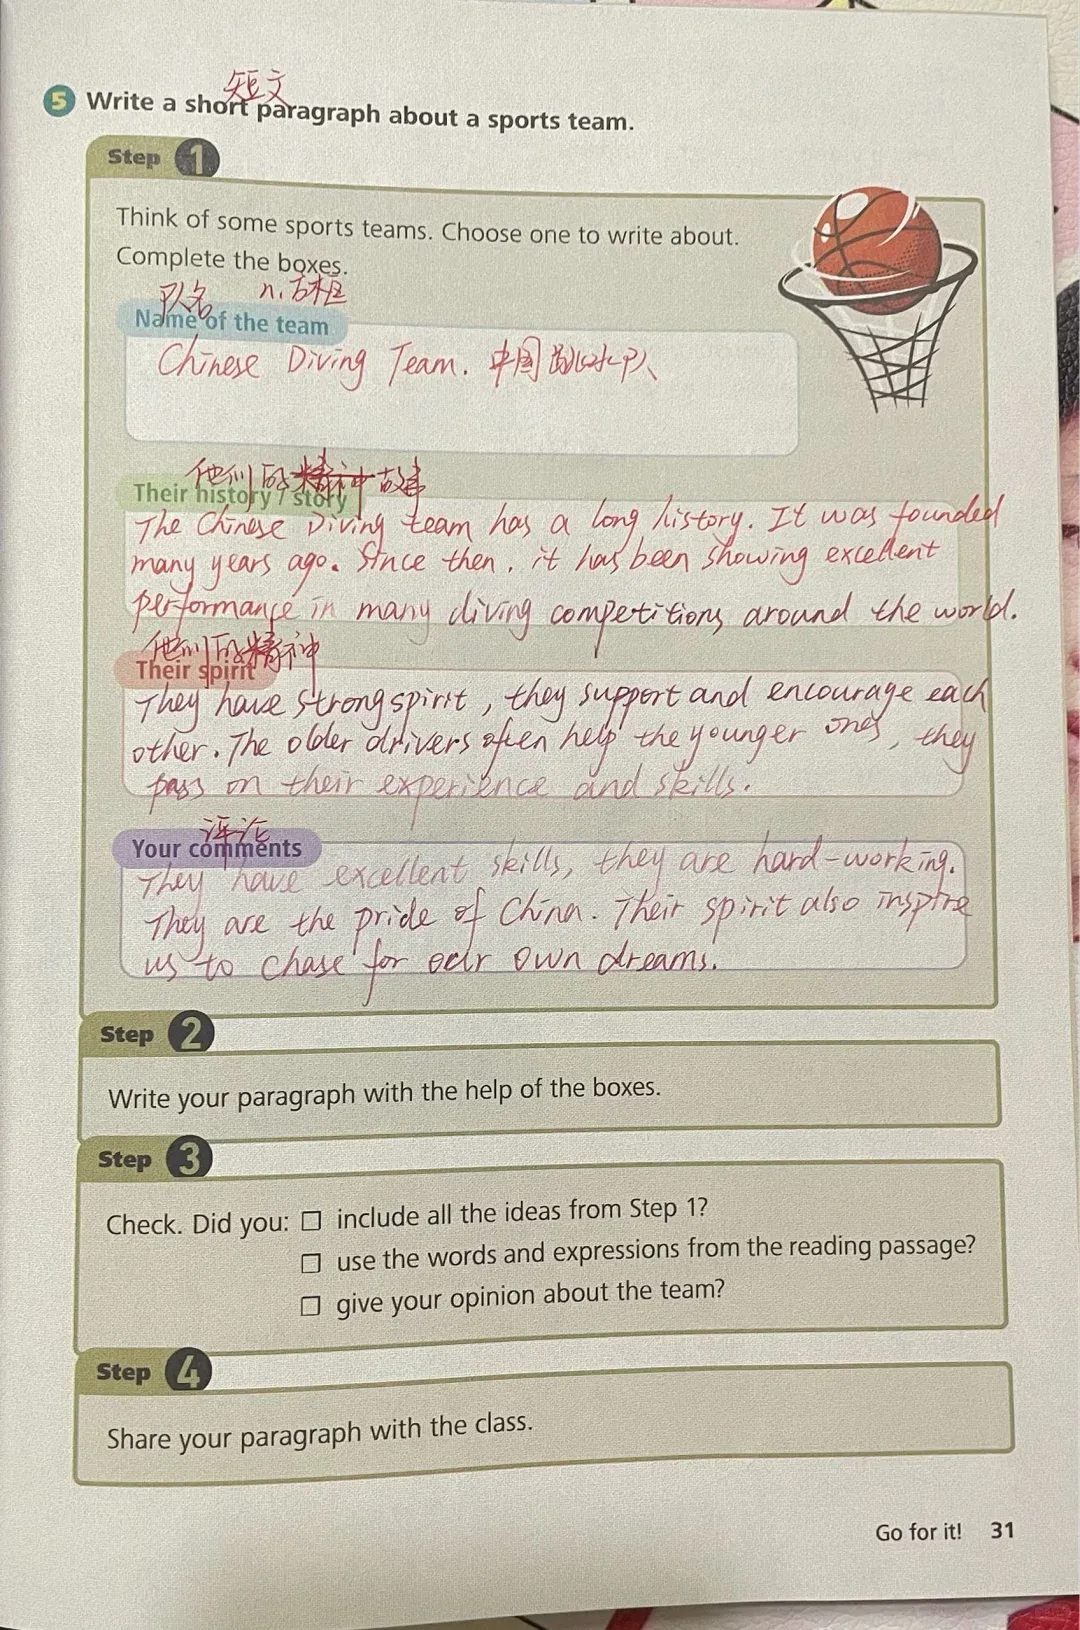 短文
5 Write a short paragraph about a sports team.
Step 1
Think of some sports teams. Choose one to write about.
Complete the boxes.
队名 n.方框
Name of the team
Chinese Diving Team. 中国跳水队
他们的精神故事
Their history / story
The Chinese Diving team has a long history. It was founded
many years ago. Since then, it has been showing excellent
performance in many diving competitions around the world.
他们的精神
Their spirit
They have strong spirit, they support and encourage each
other. The older drivers often help the younger ones, they
pass on their experience and skills.
评论
Your comments
They have excellent skills, they are hard-working.
They are the pride of China. Their spirit also inspire
us to chase for our own dreams.
Step 2
Write your paragraph with the help of the boxes.
Step 3
Check. Did you: □ include all the ideas from Step 1?
□ use the words and expressions from the reading passage?
□ give your opinion about the team?
Step 4
Share your paragraph with the class.
Go for it! 31